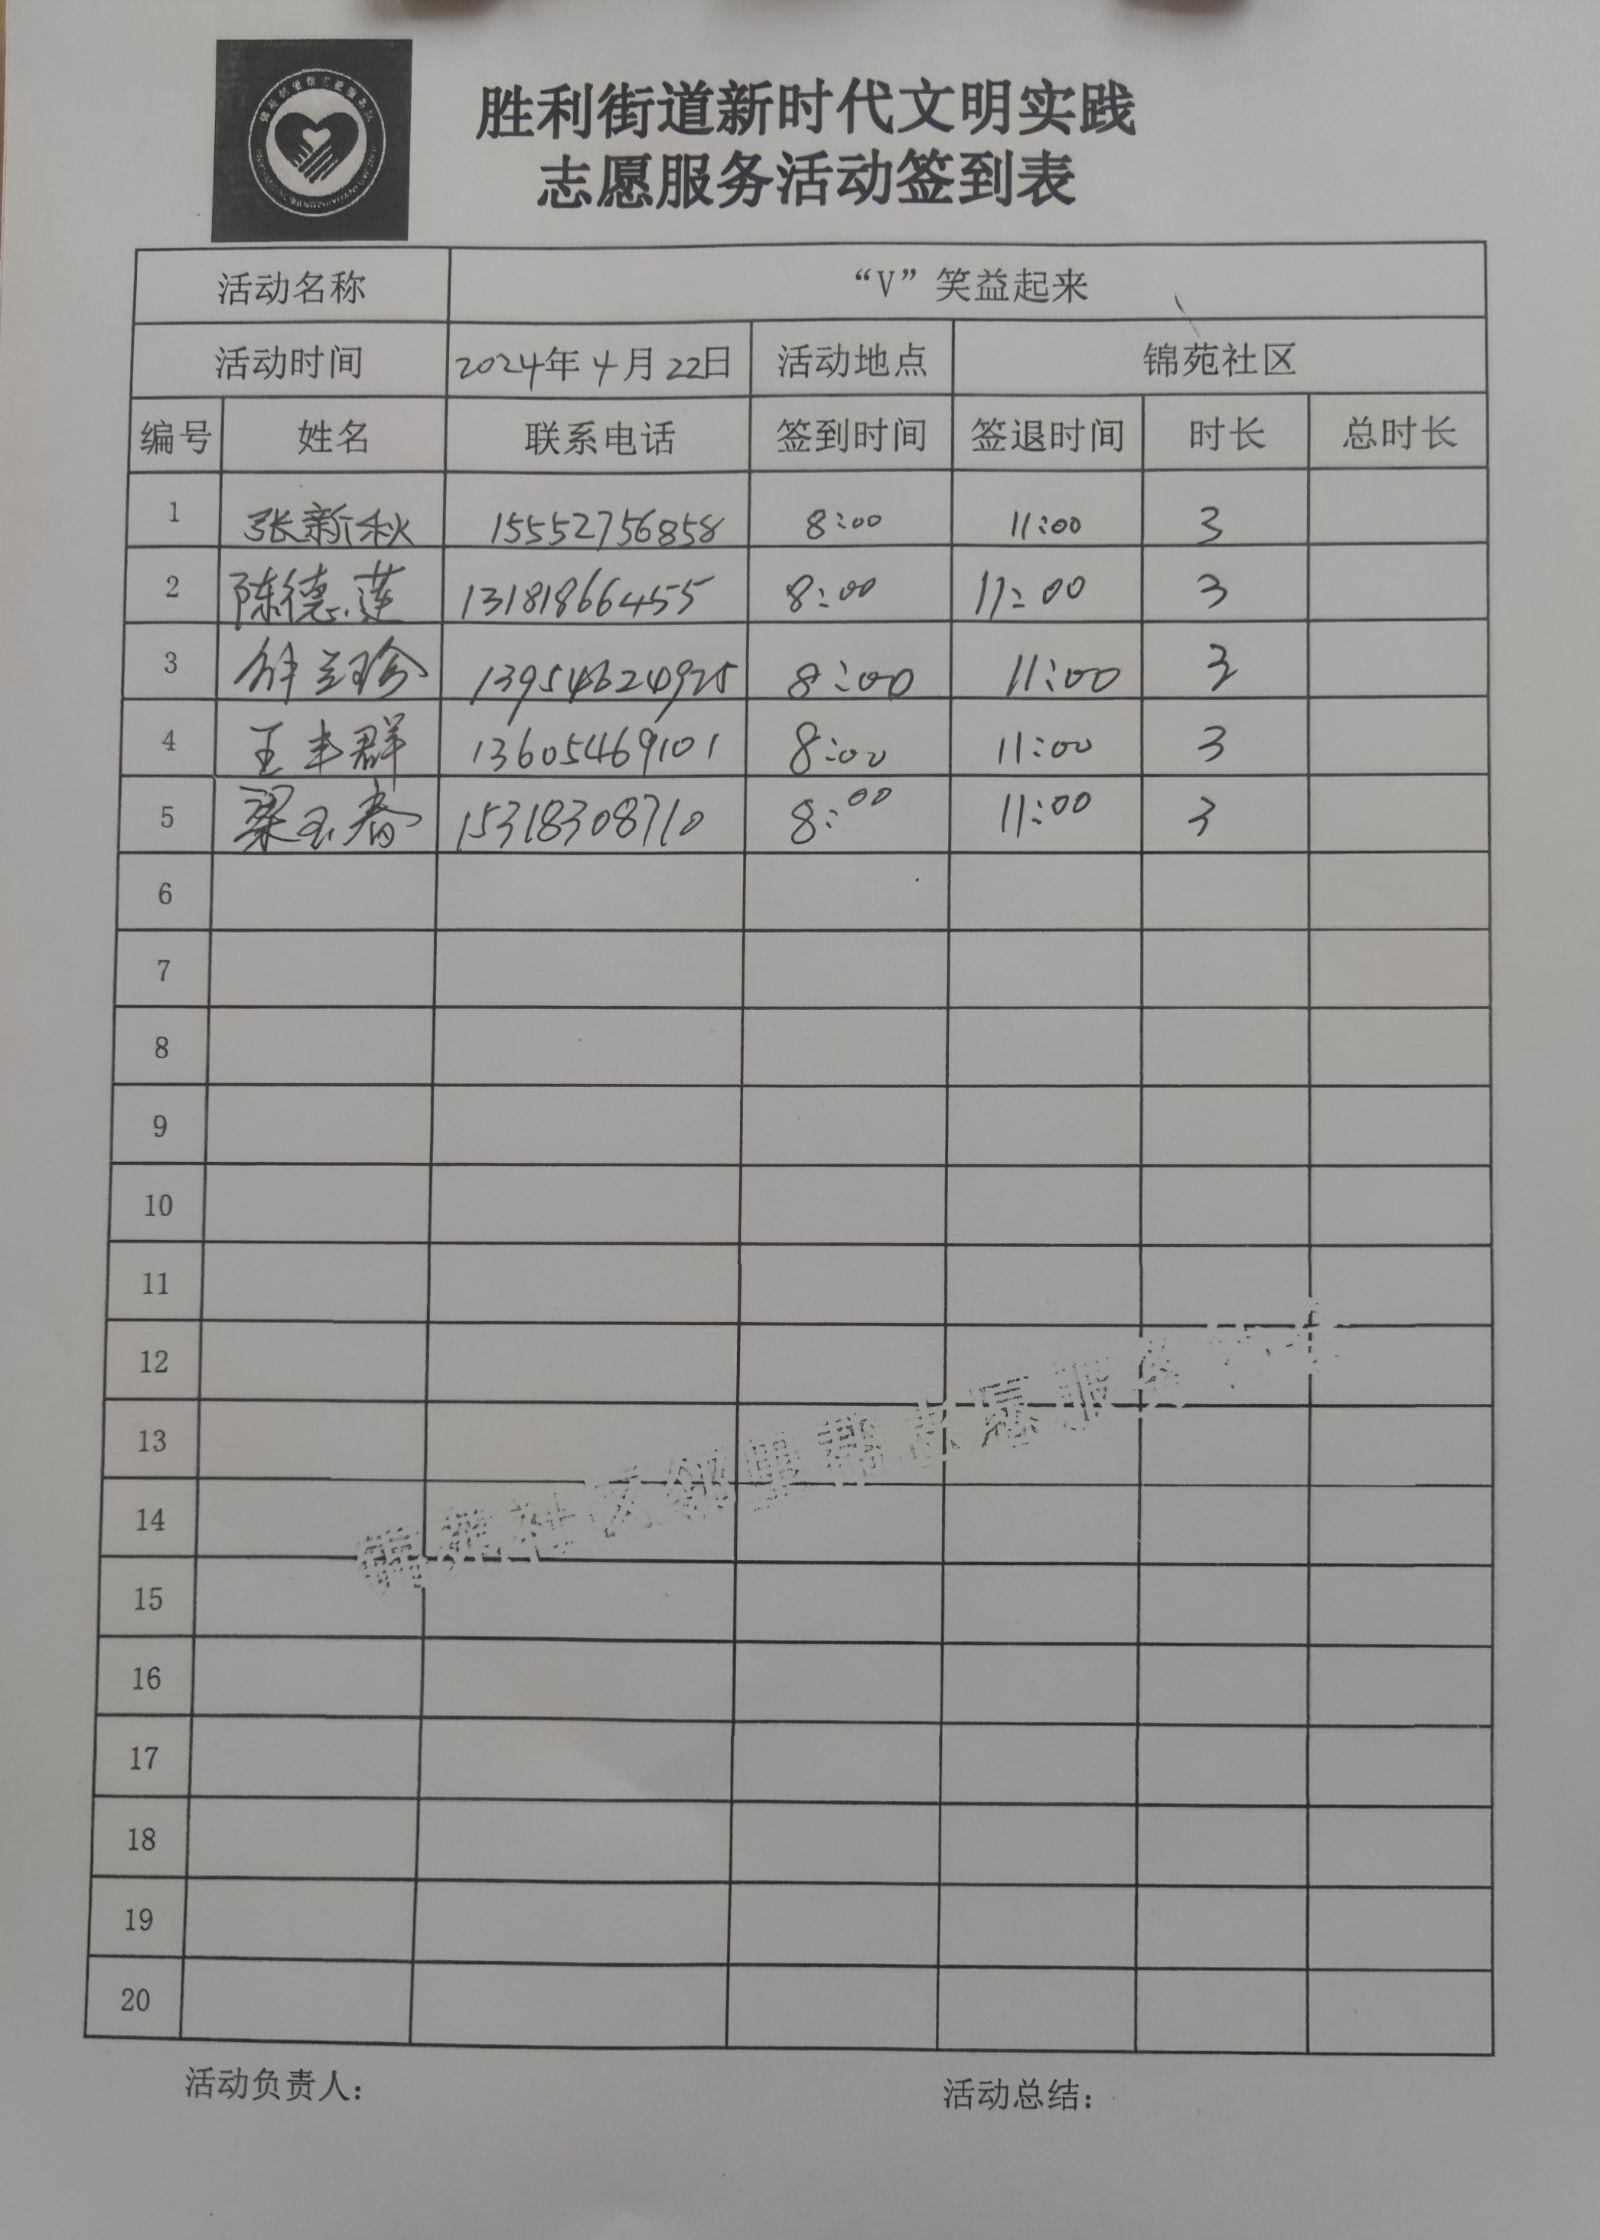 胜利街道新时代文明实践
志愿服务活动签到表
活动名称 “V”笑益起来
活动时间 2024年4月22日 活动地点 锦苑社区
编号 姓名 联系电话 签到时间 签退时间 时长 总时长
1 张新秋 15552756858 8:00 11:00 3
2 陈德莲 13181866455 8:00 11:00 3
3 13954624925 8:00 11:00 3
4 王丰群 13605469101 8:00 11:00 3
5 梁玉春 15318308710 8:00 11:00 3
6
7
8
9
10
11
12
13
14
15
16
17
18
19
20
锦苑社区邻里帮志愿服务
活动负责人: 活动总结: